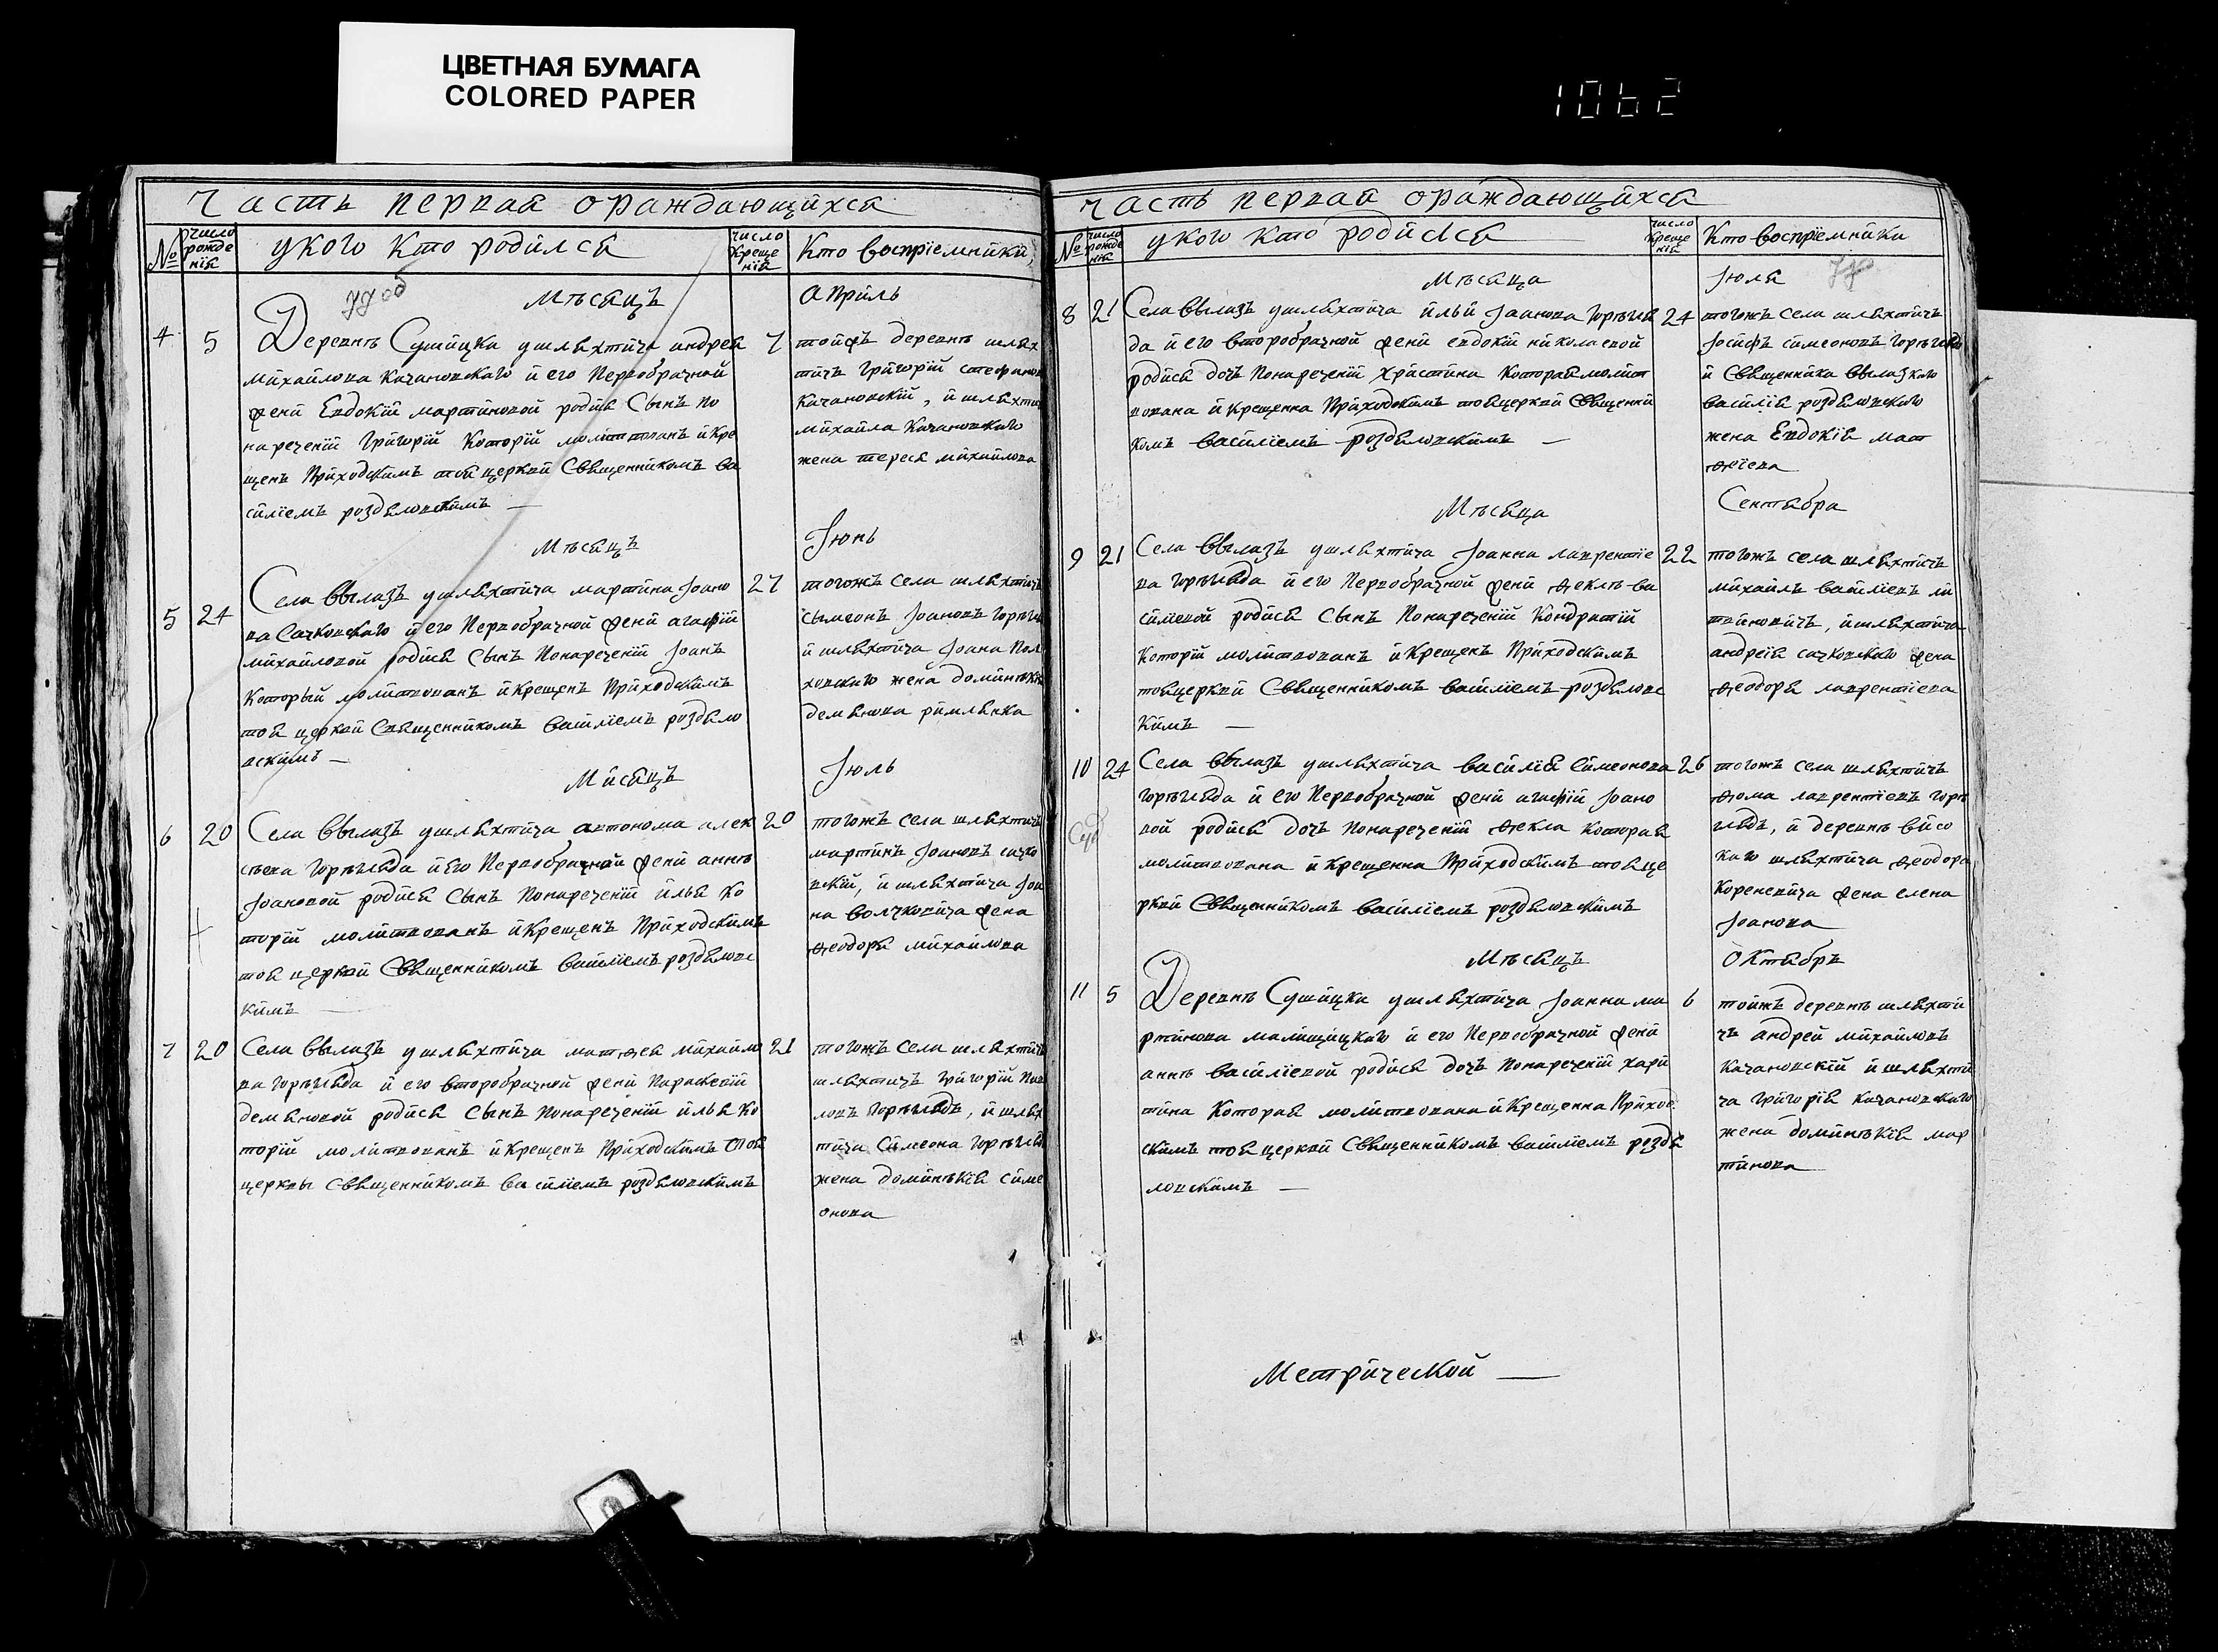 ЦВЕТНАЯ БУМАГА
COLORED PAPER
1062
Часть первая ораждающихся
№
число рождения
у кого кто родился
число крещения
Кто восприемники
Мѣсяцъ
Априль
4
5
Деревнѣ Сушицка у шляхтича андрея
михайлова Качановскаго и его Первобрачной
жени Евдокіи мартиновой родися Сынъ по
наречении Григорій Которій молитвованъ и кре
щенъ Приходскимъ тоя церкви Священникомъ ва
силіемъ роздяловскимъ —
7
тойжъ деревнѣ шлях
тичъ Григорій стефанов
Качановскій, и шляхти
михаила Качановскаго
жена тереся михайлова
Мѣсяцъ
Іюнь
5
24
Села Ввылазъ у шляхтича мартина Іоано
ва Сачковскаго и его Первобрачной жени агафіи
михайловой родися Сынъ Понареченіи Іоанъ
Который молитвованъ и Крещенъ Приходскимъ
тоя церкви Священникомъ василіемъ роздяло
вскимъ —
27
тогожъ села шляхтичъ
сымеонъ Іоановъ Горегля
и шляхтича Іоана Пол
ховскаго жена доминѣкія
демянова римлянка
Мисяцъ
Іюль
6
20
Села Ввылазъ у шляхтича автонома алек
сѣева Горѣгляда и его Первобрачной жени аннѣ
Іоановой родися Сынъ Понареченіи илья Ко
торій молитвованъ и Крещенъ Приходскимъ
тоя церкви Священникомъ василіемъ роздяловс
кимъ —
20
тогожъ села шляхтичъ
мартинъ Іоановъ сачко
вскій, и шляхтича Іоа
на волчковича жена
ѳеодора михайлова
7
20
Села Ввылазъ у шляхтича матѳея михайло
ва Горѣгляда и его второбрачной жени Параскевіи
демяновой родися Сынъ Понареченіи илья Ко
торій молитвованъ и Крещенъ Приходскимъ тоя
церквы Священникомъ василіемъ роздяловскимъ
21
тогожъ села шляхтичъ
шляхтичъ Григорій Пав
ловъ Горѣглядъ, и шлях
тича Симеона Горѣгля
жена доминѣкія симе
онова
Часть первая ораждающихся
№
число рождения
у кого кто родился
число крещения
Кто восприемники
Мѣсяца
Іюля
8
21
Села ввылазъ у шляхтича ильи Іоанова Горѣгля
да и его второбрачной жени евдокіи николаевой
родися дочъ Понареченіи христина Которая молит
вована и Крещенна Приходскимъ тояцеркви Священни
комъ василіемъ роздяловскимъ —
24
тогожъ села шляхтичъ
Іосифъ симеоновъ Горѣгляд
и Священника Ввылазкаго
василія роздяловскаго
жена Евдокія мат
ѳеіева
Мѣсяца
Сентября
9
21
Села Ввылазъ у шляхтича Іоанна лаврентіе
ва Горѣгляда и его Первобрачной жени ѳеклѣ ва
силиевой родися Сынъ Понареченіи Кондратій
Которій молитвованъ и Крещенъ Приходскимъ
тояцеркви Священникомъ василіемъ роздяловс
кимъ —
22
тогожъ села шляхтичъ
михаилъ василіевъ ли
твиновичъ, и шляхтича
андрея сачковскаго жена
ѳеодора лаврентіева
10
24
Села Ввылазъ у шляхтича василія симеонова
Горѣгляда и его Первобрачной жени агафіи Іоано
вой родися дочъ Понареченіи ѳекла Которая
молитвована и Крещенна Приходскимъ тояце
ркви Священникомъ василіемъ роздяловскимъ
26
тогожъ села шляхтичъ
ѳома лаврентіевъ Горѣ
глядъ, и деревнѣ висо
каго шляхтича ѳеодора
Кореневича жена елена
Іоанова
Мѣсяцъ
Октябръ
11
5
Деревнѣ Сушицка у шляхтича Іоанна ма
ртинова малищицкаго и его Первобрачной жени
аннѣ василіевой родися дочъ Понареченіи хари
тина Которая молитвована и Крещенна Приход
скимъ тоя церкви Священникомъ василіемъ роздя
ловскимъ —
6
тойжъ деревнѣ шляхти
чъ андрей михайловъ
Качановскій и шляхти
ча Григорія Качановскаго
жена доминѣкія мар
тинова
Метрической —